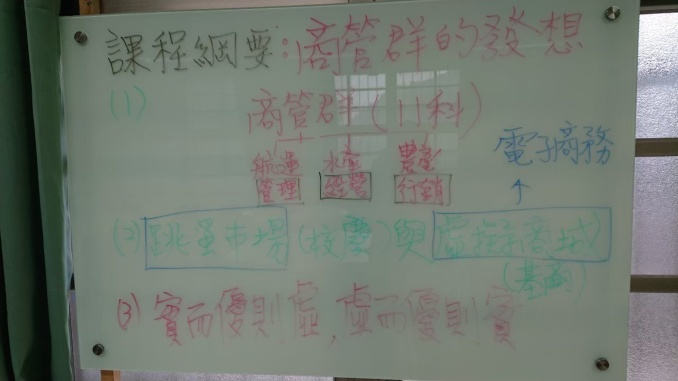 課程綱要:商管群的發想
(1)
商管群(11科)
航運管理 水產經營 農產行銷
電子商務
↑
(2)跳蚤市場(校慶)與虛擬商城
(基崗)
(3)實而優則虛,虛而優則實